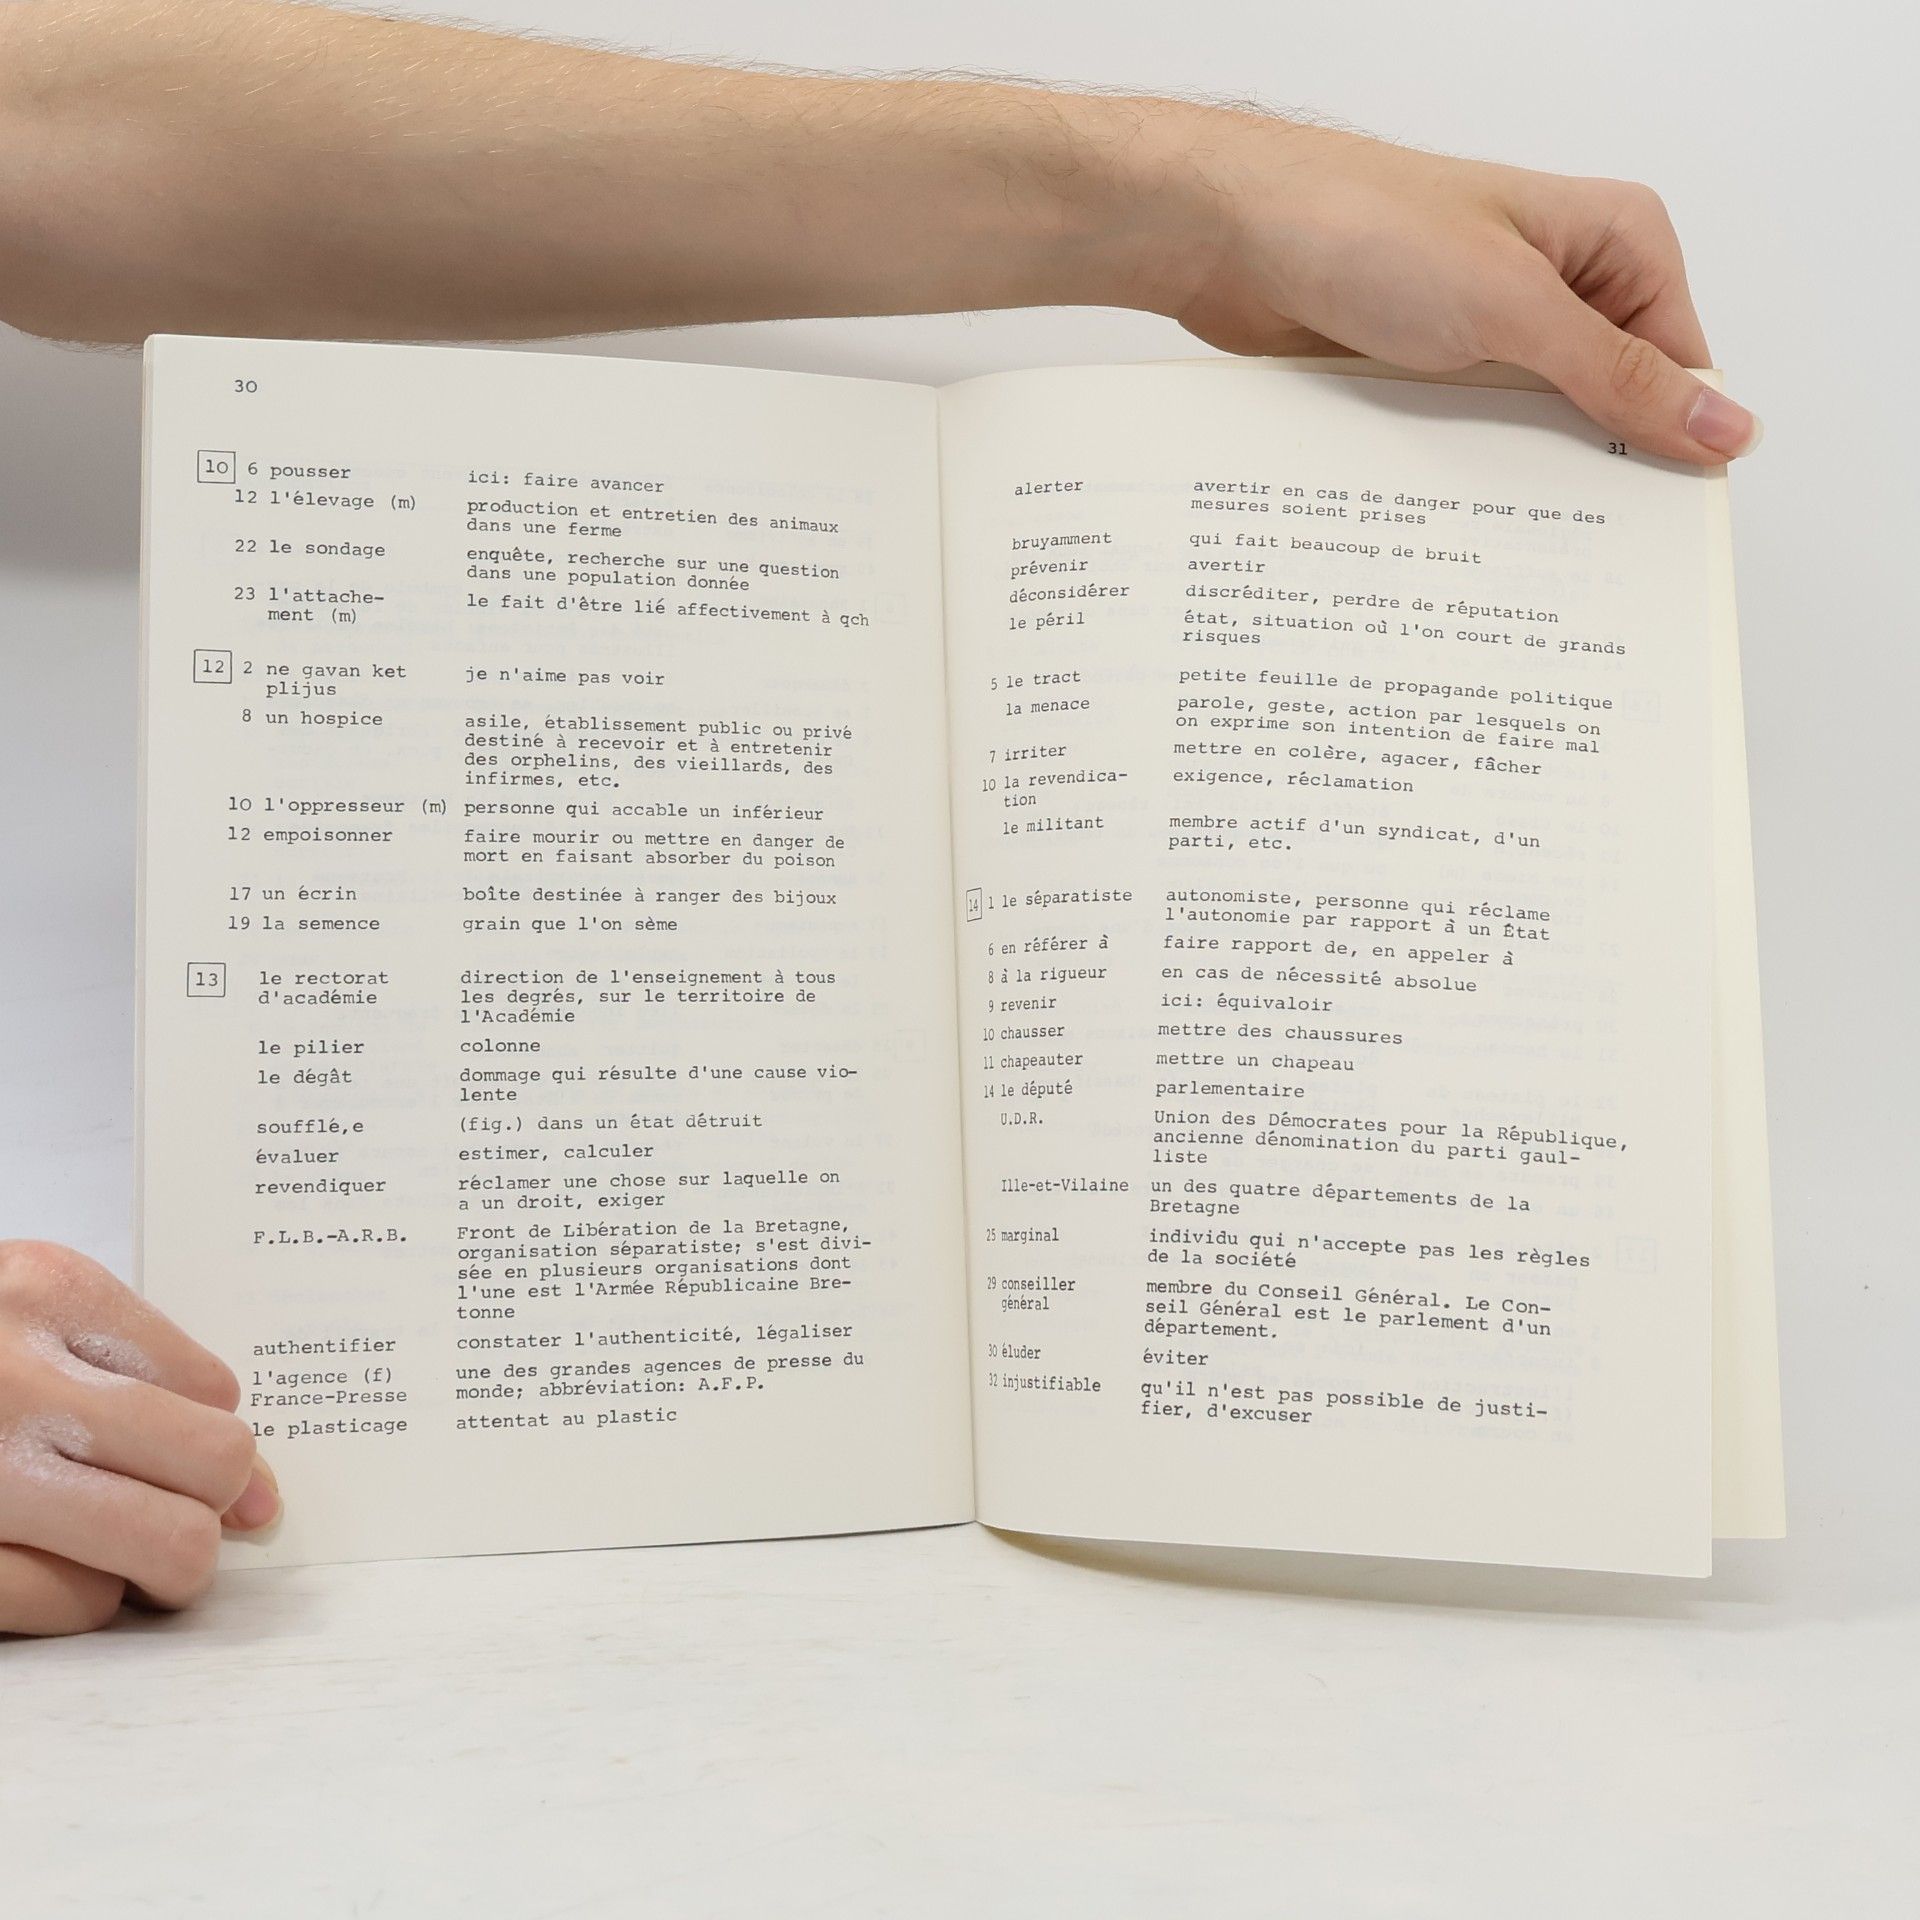 30
10 6 pousser ici: faire avancer
12 l'élevage (m) production et entretien des animaux
dans une ferme
22 le sondage enquête, recherche sur une question
dans une population donnée
23 l'attache- le fait d'être lié affectivement à qch
ment (m)
12 2 ne gavan ket je n'aime pas voir
plijus
8 un hospice asile, établissement public ou privé
destiné à recevoir et à entretenir
des orphelins, des vieillards, des
infirmes, etc.
10 l'oppresseur (m) personne qui accable un inférieur
12 empoisonner faire mourir ou mettre en danger de
mort en faisant absorber du poison
17 un écrin boîte destinée à ranger des bijoux
19 la semence grain que l'on sème
13 le rectorat direction de l'enseignement à tous
d'académie les degrés, sur le territoire de
l'Académie
le pilier colonne
le dégât dommage qui résulte d'une cause vio-
lente
soufflé,e (fig.) dans un état détruit
évaluer estimer, calculer
revendiquer réclamer une chose sur laquelle on
a un droit, exiger
F.L.B.-A.R.B. Front de Libération de la Bretagne,
organisation séparatiste; s'est divi-
sée en plusieurs organisations dont
l'une est l'Armée Républicaine Bre-
tonne
authentifier constater l'authenticité, légaliser
l'agence (f) une des grandes agences de presse du
France-Presse monde; abbréviation: A.F.P.
le plasticage attentat au plastic
31
alerter avertir en cas de danger pour que des
mesures soient prises
bruyamment qui fait beaucoup de bruit
prévenir avertir
déconsidérer discréditer, perdre de réputation
le péril état, situation où l'on court de grands
risques
5 le tract petite feuille de propagande politique
la menace parole, geste, action par lesquels on
on exprime son intention de faire mal
7 irriter mettre en colère, agacer, fâcher
10 la revendica- exigence, réclamation
tion
le militant membre actif d'un syndicat, d'un
parti, etc.
14 1 le séparatiste autonomiste, personne qui réclame
l'autonomie par rapport à un État
6 en référer à faire rapport de, en appeler à
8 à la rigueur en cas de nécessité absolue
9 revenir ici: équivaloir
10 chausser mettre des chaussures
11 chapeauter mettre un chapeau
14 le député parlementaire
U.D.R. Union des Démocrates pour la République,
ancienne dénomination du parti gaul-
liste
Ille-et-Vilaine un des quatre départements de la
Bretagne
25 marginal individu qui n'accepte pas les règles
de la société
29 conseiller membre du Conseil Général. Le Con-
général seil Général est le parlement d'un
département.
30 éluder éviter
32 injustifiable qu'il n'est pas possible de justi-
fier, d'excuser